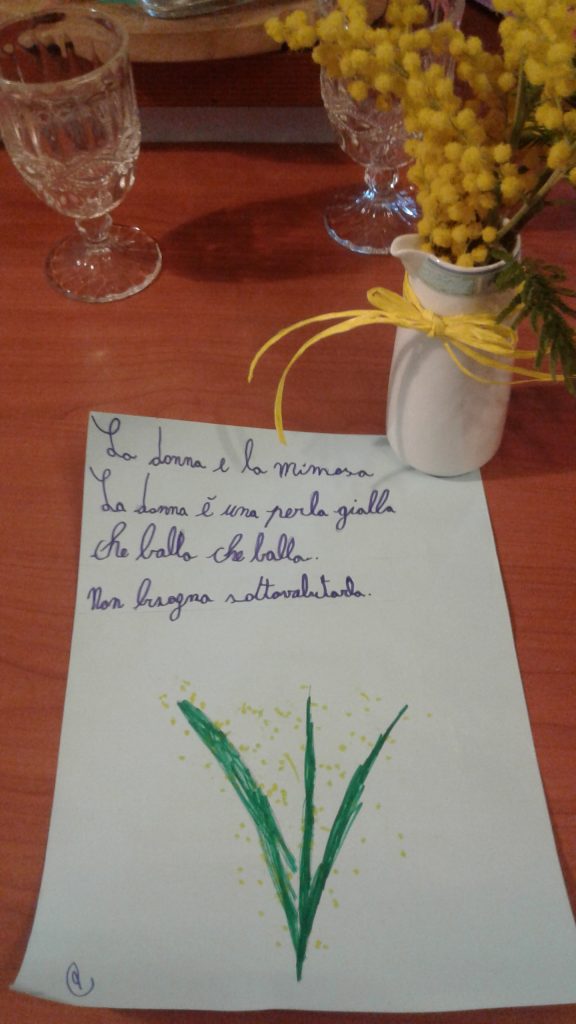 La donna e la mimosa
La donna è una perla gialla
che balla che balla.
Non bisogna sottovalutarla.